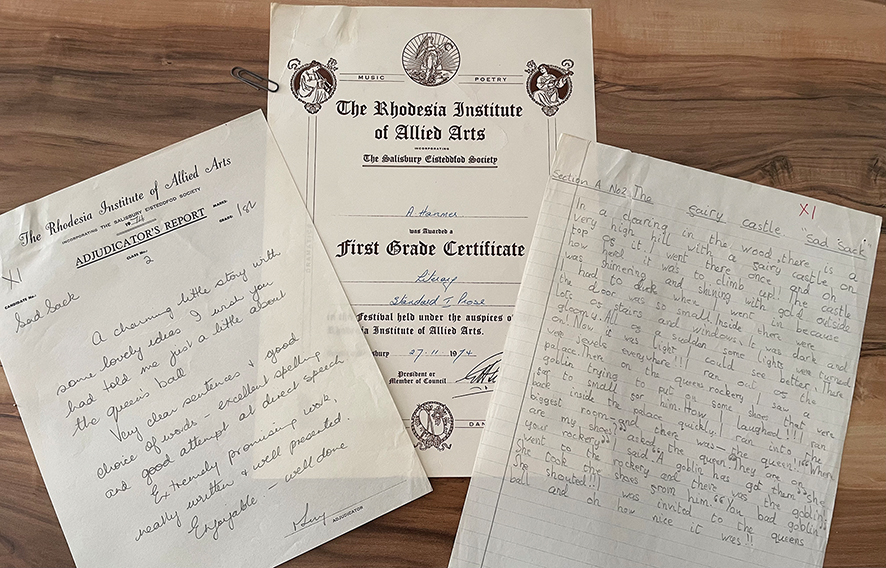 The Rhodesia Institute of Allied Arts
INCORPORATING THE SALISBURY EISTEDDFOD SOCIETY
1974
ADJUDICATOR'S REPORT
MARKS
GRADE 1st
CLASS No. 2
XI
CANDIDATE No.
Sad Sack
A charming little story with
some lovely ideas I wish you
had told me just a little about
the queens ball
Very clear sentences & good
choice of words – excellent spelling
and good attempt at direct speech
Extremely promising work,
neatly written & well presented.
Enjoyable – well done
ADJUDICATOR
MUSIC POETRY
The Rhodesia Institute
of Allied Arts
INCORPORATING
The Salisbury Eisteddfod Society
A. Hanmer
was Awarded a
First Grade Certificate
Literary
Standard I Prose
Festival held under the auspices of
Institute of Allied Arts.
27.11 1974
President or
Member of Council
DAN
Section A No2 The fairy castle "Sad Sack"
XI
In a clearing in the wood, there is a
very high hill with a fairy castle on
top of it. I went there once and oh
how hard it was to climb up!! The castle
was shimering and shining with gold outside
I had to duck when I went in because
the door was so small. Inside there were
lots of stairs and windows. It was dark and
gloomy. All of a sudden some lights were turned
on. Now it was light I could see better. There
were jewels everywhere!! I ran out of the
palace. Then on the queens rockery I saw a
goblin trying to put on some shoes that were
far to small for him. How I laughed!!! I ran
back inside the palace quickly. I ran into the
biggest room – and there was – the queen!!! "Where
are my shoes?" asked the queen "They are on
your rockery" I said "A goblin has got them" she
went to the rockery and there was the goblin
She took the shoes from him. "You bad goblin"
she shouted!! I was invited to the queens
ball and oh how nice it was!!